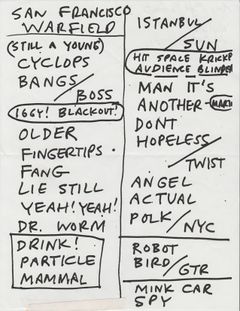 SAN FRANCISCO
WARFIELD
(STILL A YOUNG)
CYCLOPS
BANGS/
BOSS
IGGY! BLACKOUT!
OLDER
FINGERTIPS
FANG
LIE STILL
YEAH! YEAH!
DR. WORM
DRINK!
PARTICLE
MAMMAL
ISTANBUL/
SUN
HIT SPACE
AUDIENCE
MAN IT'S
ANOTHER -
DONT
HOPELESS/
TWIST
ANGEL
ACTUAL
POLK/NYC
ROBOT
BIRD/GTR
MINK CAR
SPY